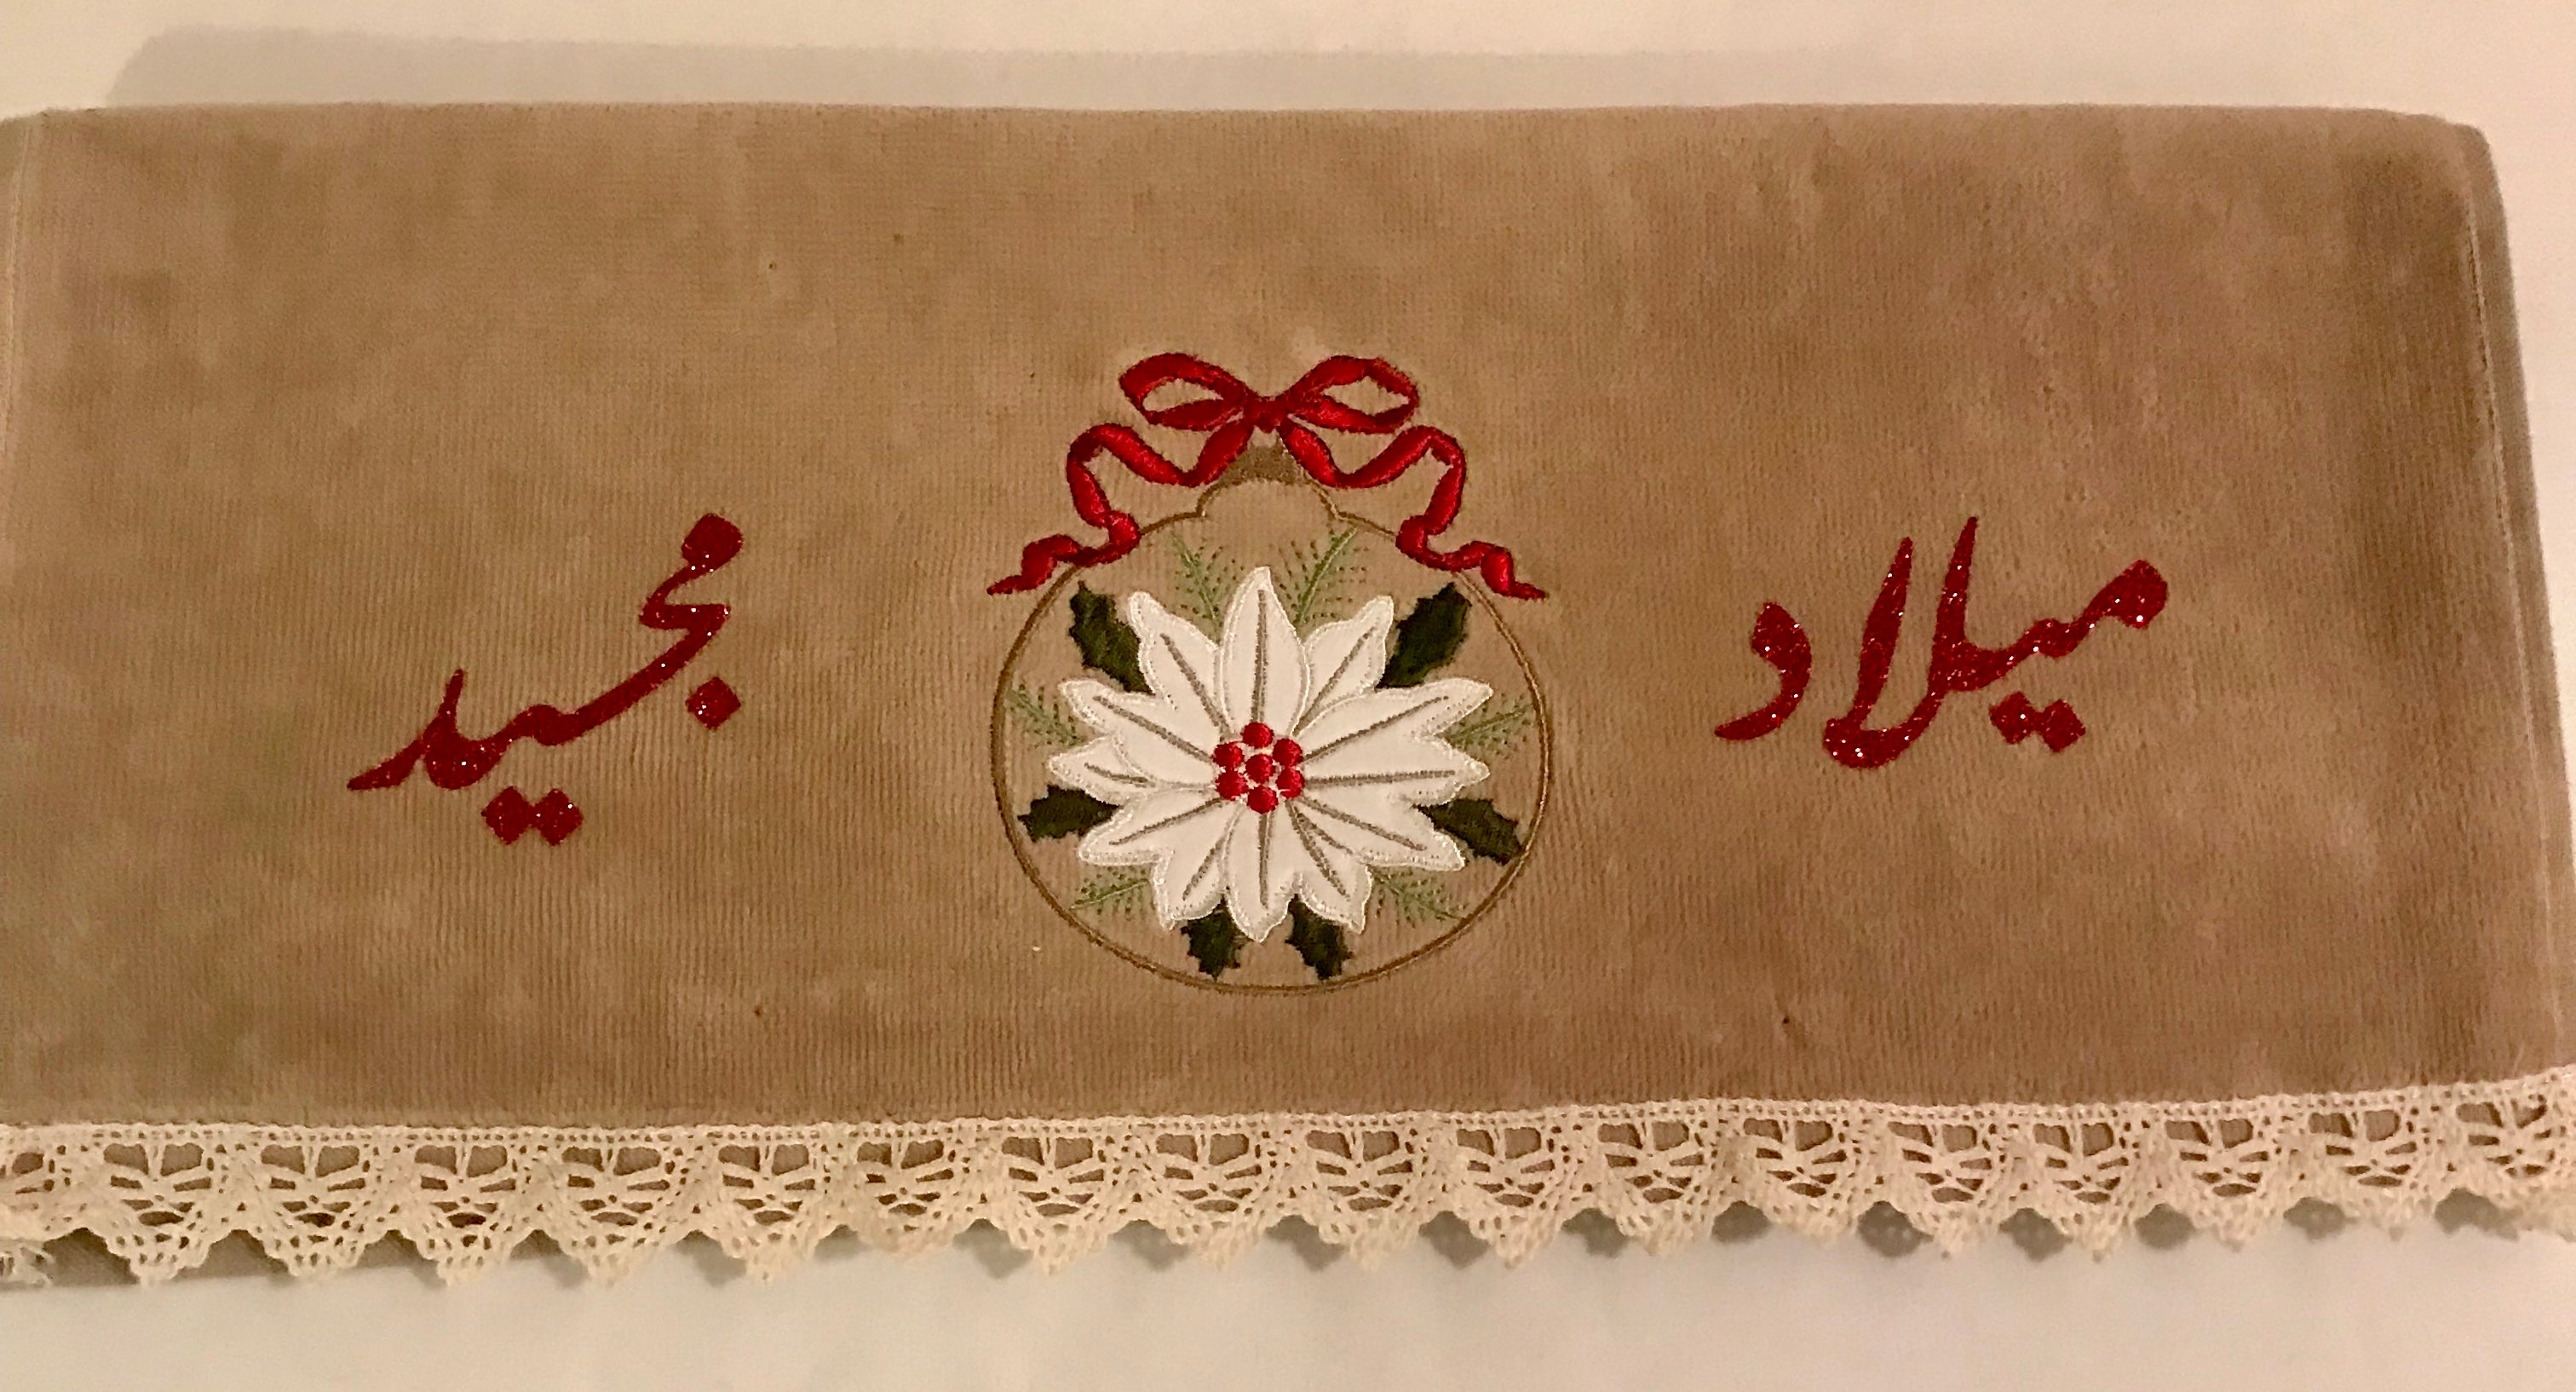 ميلاد مجيد